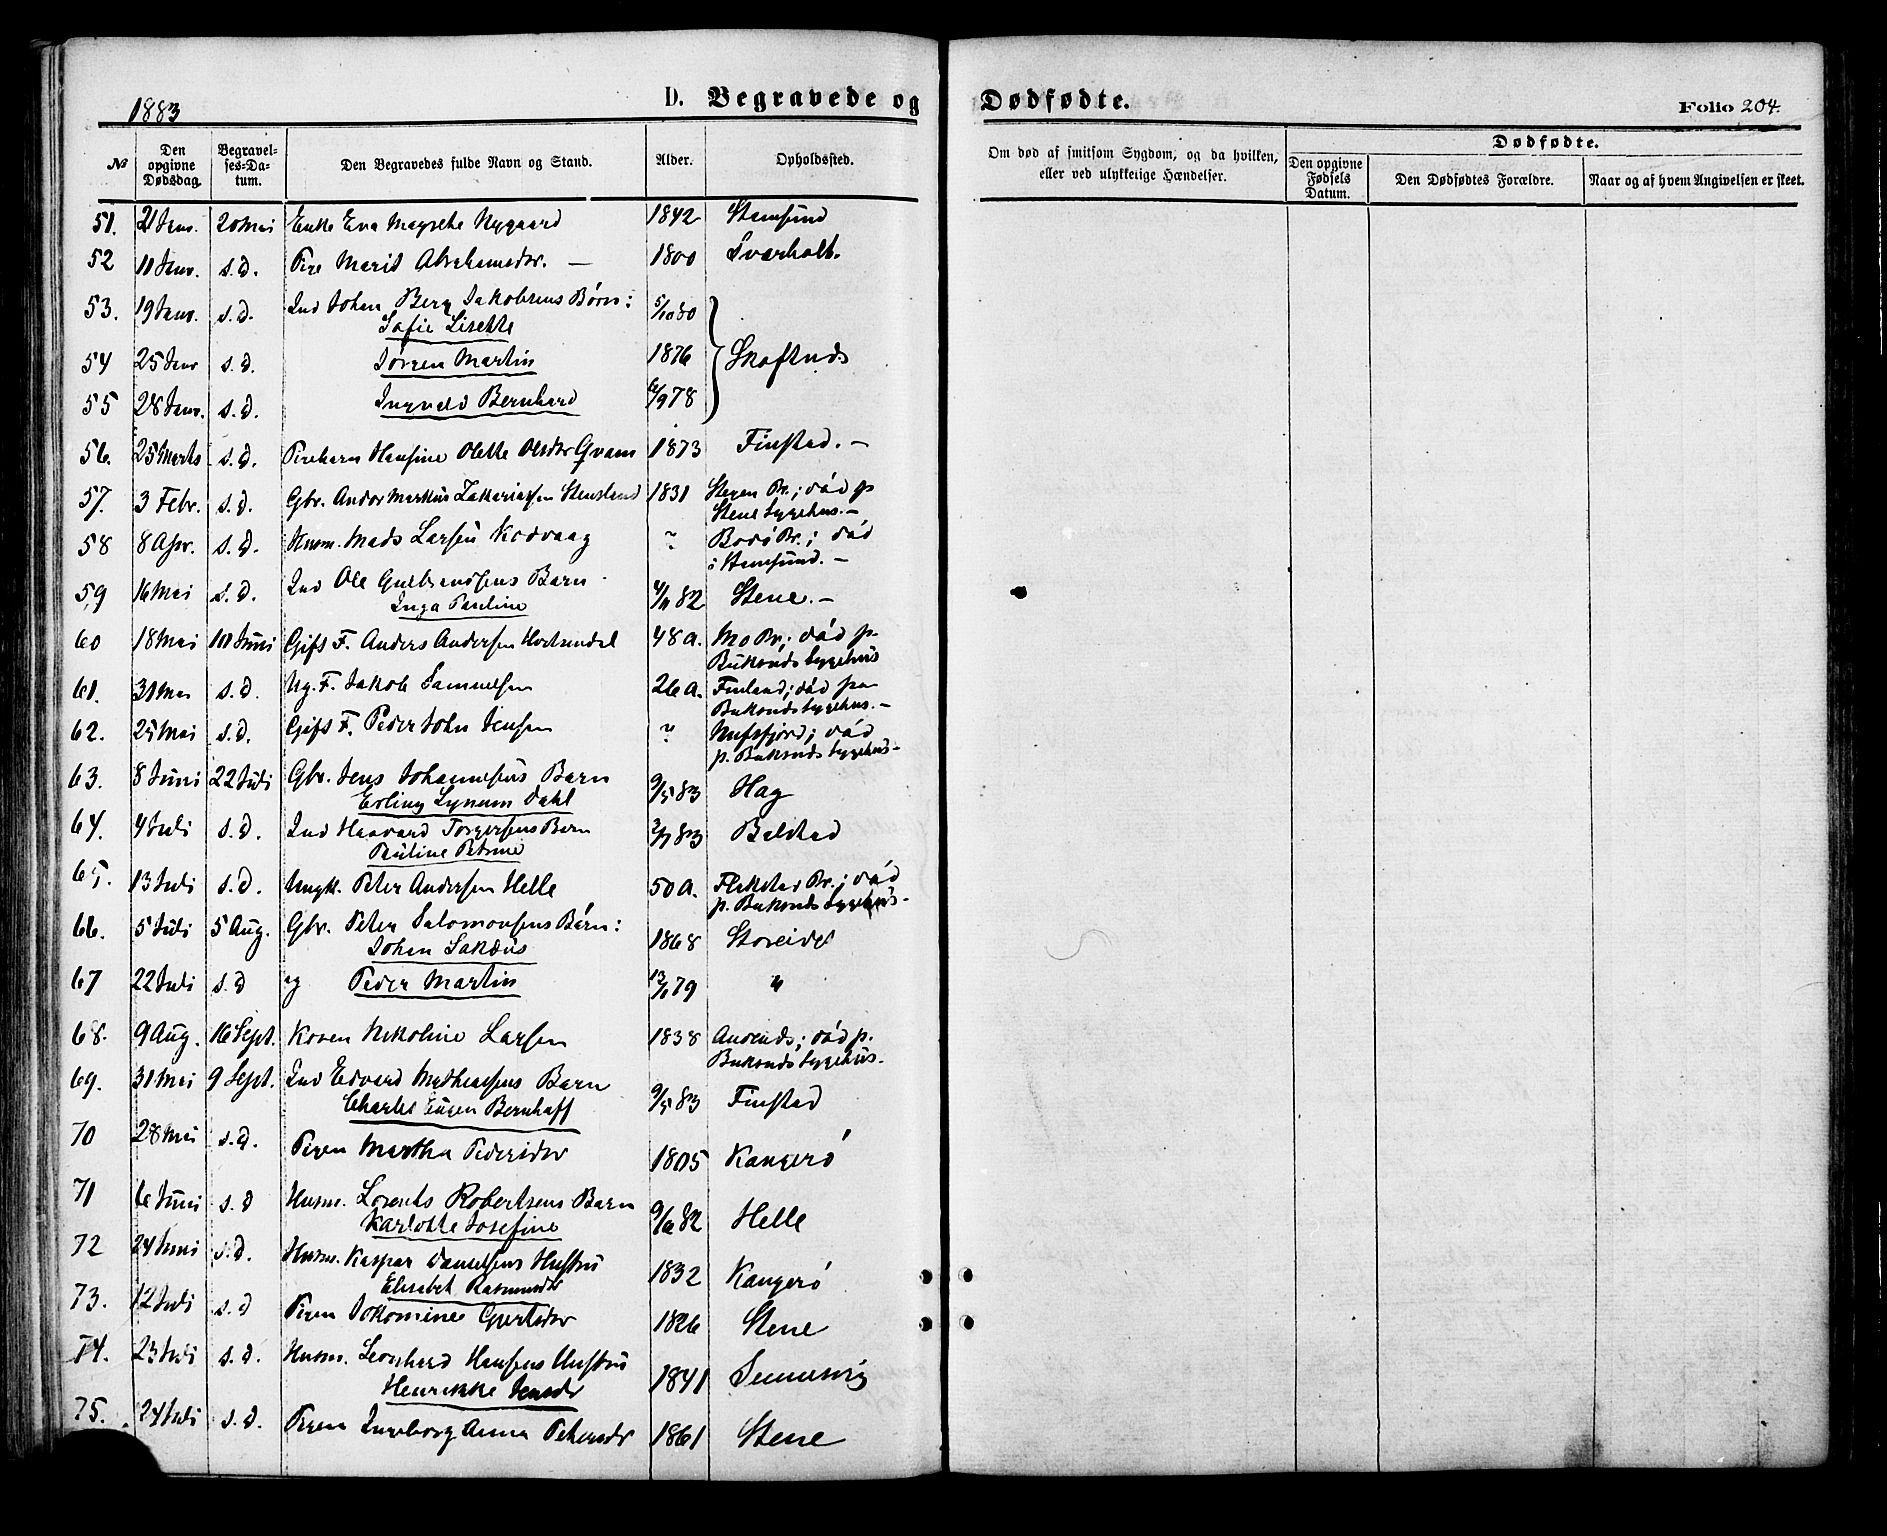 1883
D. Begravede og Dødfødte.
Folio 204.
№ Den opgivne Dødsdag. Begravelses-Datum. Den Begravedes fulde Navn og Stand. Alder. Opholdssted.
Om død af smitsom Sygdom, og da hvilken, eller ved ulykkelige Hændelser.
Dødfødte.
Den opgivne Fødsels Datum. Den Dødfødtes Forældre. Naar og af hvem Angivelsen er skeet.
51. 21 Janr. 20 Mai Enke Eva Nygaard 1842 Stamsund
52 11 Janr. s. d. Pige Marit Abrahamsdr. — 1800 Svarholt.
53. 19 Janr. s. d. Ind Johan Berg Jakobsens Børn: 5/10 80
Sofie Lisette
54 25 Janr s. d. Jørgen Martin 1876 Skaftnds
55 28 Janr. s. d. Ingvald Bernhard 6/9 78
56. 25 Marts s. d. Pigebarn Hansine Olette Olsdr Qvam 1873 Finstad. —
57. 3 Febr. s. d. Gbr. Andor Markus Zakariassen Stensland 1831 Stegen Pr.; død p
Stene Sygehus. —
58 8 Apr. s. d. Husm. Mads Larsen Kodvaag ~ Bodø Pr.; død
i Stamsund. —
59 16 Mai s. d. Ind Ole Gulbrandsens Barn
Inga Pauline 4/11 82 Stene. —
60 18 Mai 10 Juni Gift F. Anders Andersen 48 a. Mo Pr.; død p.
Buksnds Sygehus
61. 31 Mai s. d. Ug. F. Jakob Samuelsen 26 a. Finland; død paa
Buksnds Sygehus. —
62. 25 Mai s. d. Gift F. Peder John Jensen ~ Nufsfjord; død
p. Buksnds Sygehus —
63. 8 Juni 22 Juli Gbr. Jens Johannesens Barn
Erling Lynum Dahl 9/5 83 Hag
64. 4 Juli s. d. Ind Haavard Torgersens Barn
Pauline Petrine 2/7 83 Balstad
65. 13 Juli s. d. Ungk. Peter Andersen Helle 50 a. Flakstad Pr.; død
p. Buksnds Sygehus.
66. 5 Juli 5 Aug. Gbr. Peter Salomonsens Børn:
Johan Sakæus 1868 Storeidet
67 22 Juli s. d og Peder Martin 13/1 79 "
68. 9 Aug. 16 Sept. Konen Nikoline Larsen 1838 død p.
Buksnds Sygehus.
69. 31 Mai 9 Sept. Ind Edvard Mathiassens Barn
Charles Eugen Bernhoff 9/5 83 Finstad
70 28 Mai s. d. Pigen Martha Pedersdr 1805 Kangerø
71 6 Juni s. d Husm. Lorents Robertsens Barn
Karlotte Josefine 9/12 82 Helle
72 24 Juni s. d. Husm. Kaspar Danielsens Hustru
Elisabet Rasmusdr 1832 Kangerø
73. 12 Juli s. d Pigen Jakomine Gjertsdr 1826 Stene
74. 23 Juli s. d. Husm. Leonhard Hansens Hustru
Henrikke Jensdr 1841 Sennesvig
75. 24 Juli s. d. Pigen Ingeborg Anna Petersdr 1861 Stene